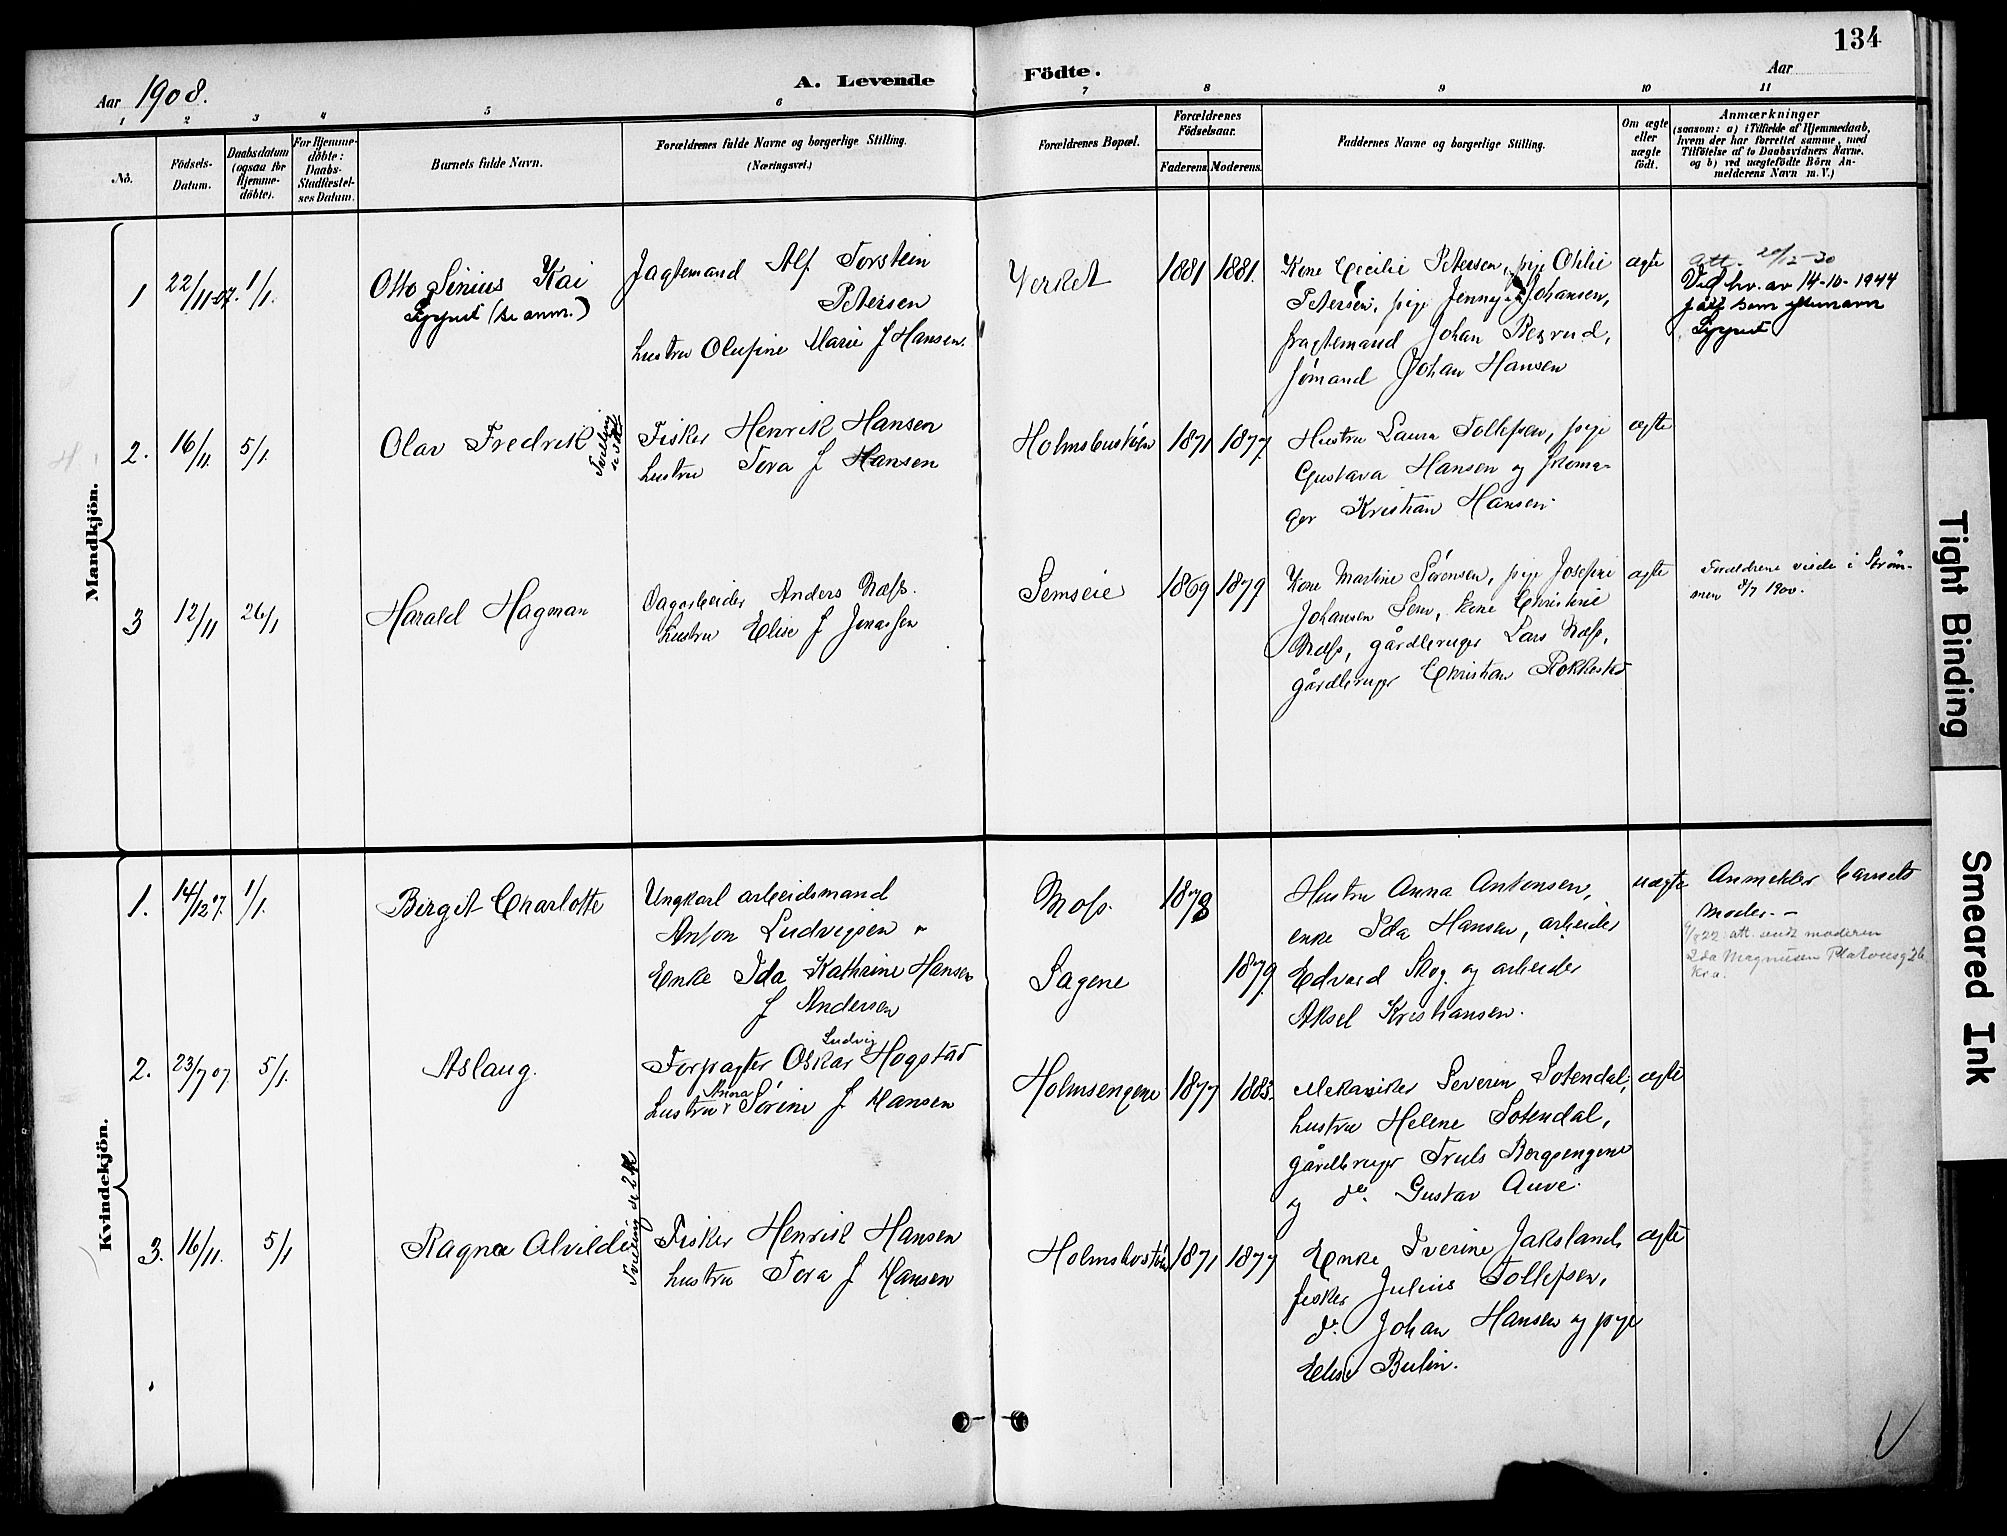 134
Aar 1908.
A. Levende Födte.
Aar
1 2 3 4 5 6 7 8 9 10 11
No.
Födsels-
Datum.
Daabsdatum
(ogsaa for
Hjemme-
döbte).
For Hjemme-
döbte:
Daabs-
Stadfæstel-
ses Datum.
Barnets fulde Navn.
Forældrenes fulde Navne og borgerlige Stilling.
(Næringsvei.)
Forældrenes Bopæl.
Forældrenes
Födselsaar.
Faderens. Moderens.
Faddernes Navne og borgerlige Stilling.
Om ægte
eller
uægte
födt.
Anmærkninger
(saasom: a) i Tilfælde af Hjemmedaab,
hvem der har forrettet samme, med
Tilföielse af to Daabsvidners Navne,
og b) ved uægtefödte Börn An-
melderens Navn m. V.)
Mandkjön.
1 22/11-07. 1/1.
Otto Sinius Kai
(se anm.)
Jagtemand Alf Torstein
Petersen
hustru Olufine Marie f Hansen.
Verket
1881 1881.
Kone Cecilie Petersen, pige Othlie
Petersen, pige Jenny Johansen,
fragtemand Johan Besrud,
sømand Johan Hansen
ægte
att. 20/5-30
Ved kv. av 14-10-1944
som
2. 16/11. 5/1.
Olav Fredrik
Tvilling
Fisker Henrik Hansen
hustru Tora f Hansen
1871 1877.
Hustru Laura Tollefsen, pige
Gustava Hansen og skoma-
ger Kristian Hansen.
ægte
3 12/11 26/1
Harald Hagman
Dagarbeider Anders Næss.
hustru Elise f Jonassen
Semseie
1869 1879
Kone Martine Sørensen, pige Josefine
Johansen Sem, kone Christine
Næss, gårdbruger Lars Næss,
gårdbruger Christian Rokkestad
ægte
Forældrene viede i Strøm-
men 8/7 1900.
Kvindekjön.
1. 14/12 07. 1/1.
Birgit Charlotte
Ungkarl arbeidsmand
Anton Ludvigsen
Enke Ida Kathrine Hansen
f Andersen
Moss.
Sagene
1878
1879.
Hustru Anna Antonsen,
enke Ida Hansen, arbeider
Edvard Skog og arbeider
Aksel Kristiansen.
uægte
Anmelder barnets
moder. –
att. sendt moderen
Ida Magnusen
Kra.
2. 23/7 07. 5/1.
Aslaug.
Forpagter Oskar Ludvig Hogstad
hustru Anna Sørine f. Hansen
Holmsengene
1877 1883.
Mekaniker Severin Sotendal,
hustru Helene Sotendal,
gårdbruger Truls Borgsengene
og do. Gustav Auve.
ægte
3. 16/11. 5/1
Ragna Alvilde
Tvilling se 2 M
Fisker Henrik Hansen
hustru Tora f Hansen
1871 1877
Enke Iverine Jaksland,
fisker Julius Tollefsen,
do. Johan Hansen og pige
Elise Bulin.
ægte
Tight Binding
Smeared Ink